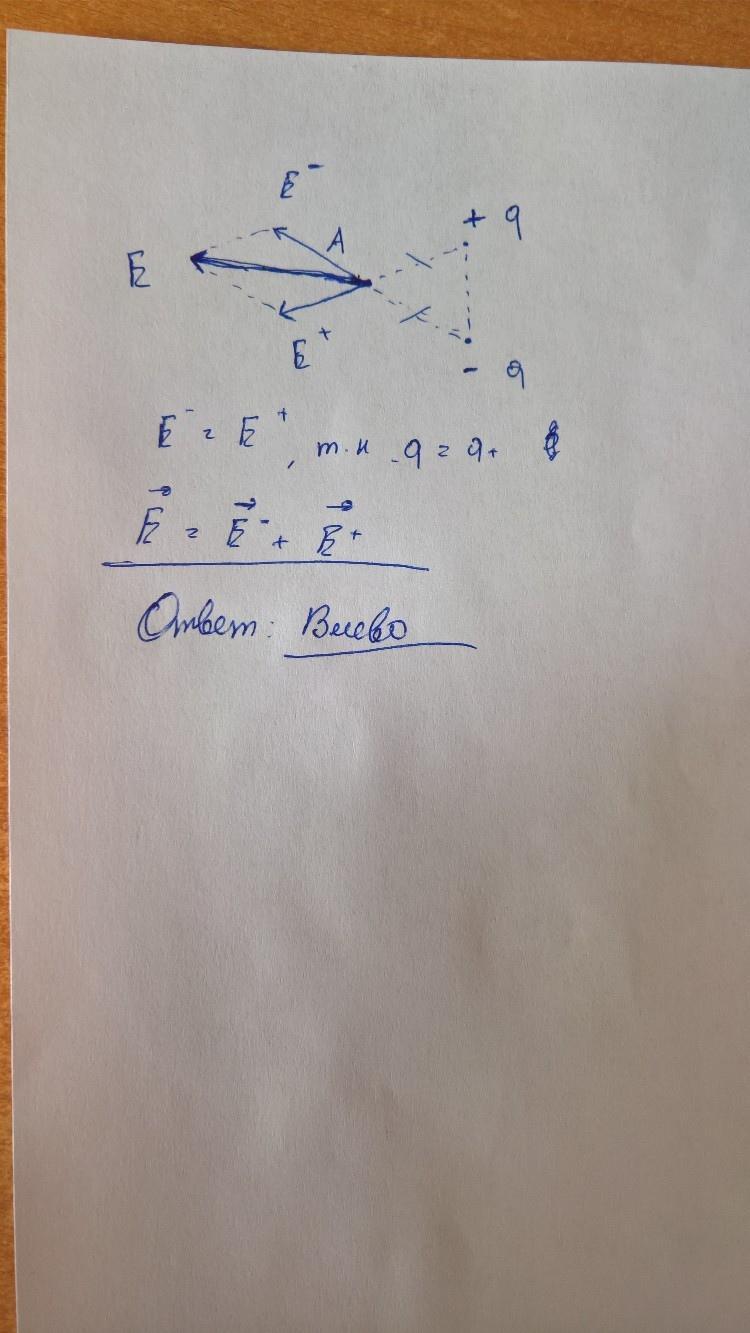 E⁻
A
+ q
E
E⁺
- q
E⁻ = E⁺, т.к -q = q+
E⃗ = E⃗⁻ + E⃗⁺
Ответ: Влево